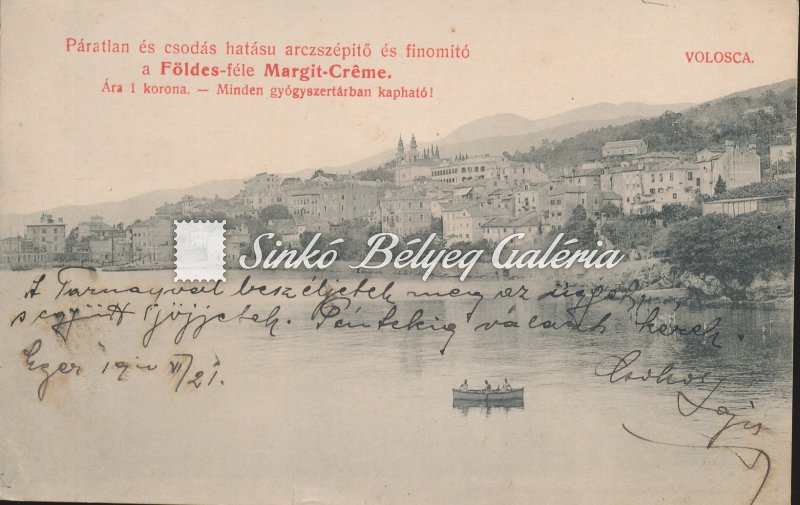 Páratlan és csodás hatásu arczszépitő és finomitó
a Földes-féle Margit-Crême.
Ára 1 korona. — Minden gyógyszertárban kapható!
VOLOSCA.
Sinkó Bélyeg Galéria
A Tarnayval beszéljetek meg az ügyet,
s együtt jöjjetek. Péntekig választ kérek.
Eger 1910 VI/21.
Csokos
Lajos